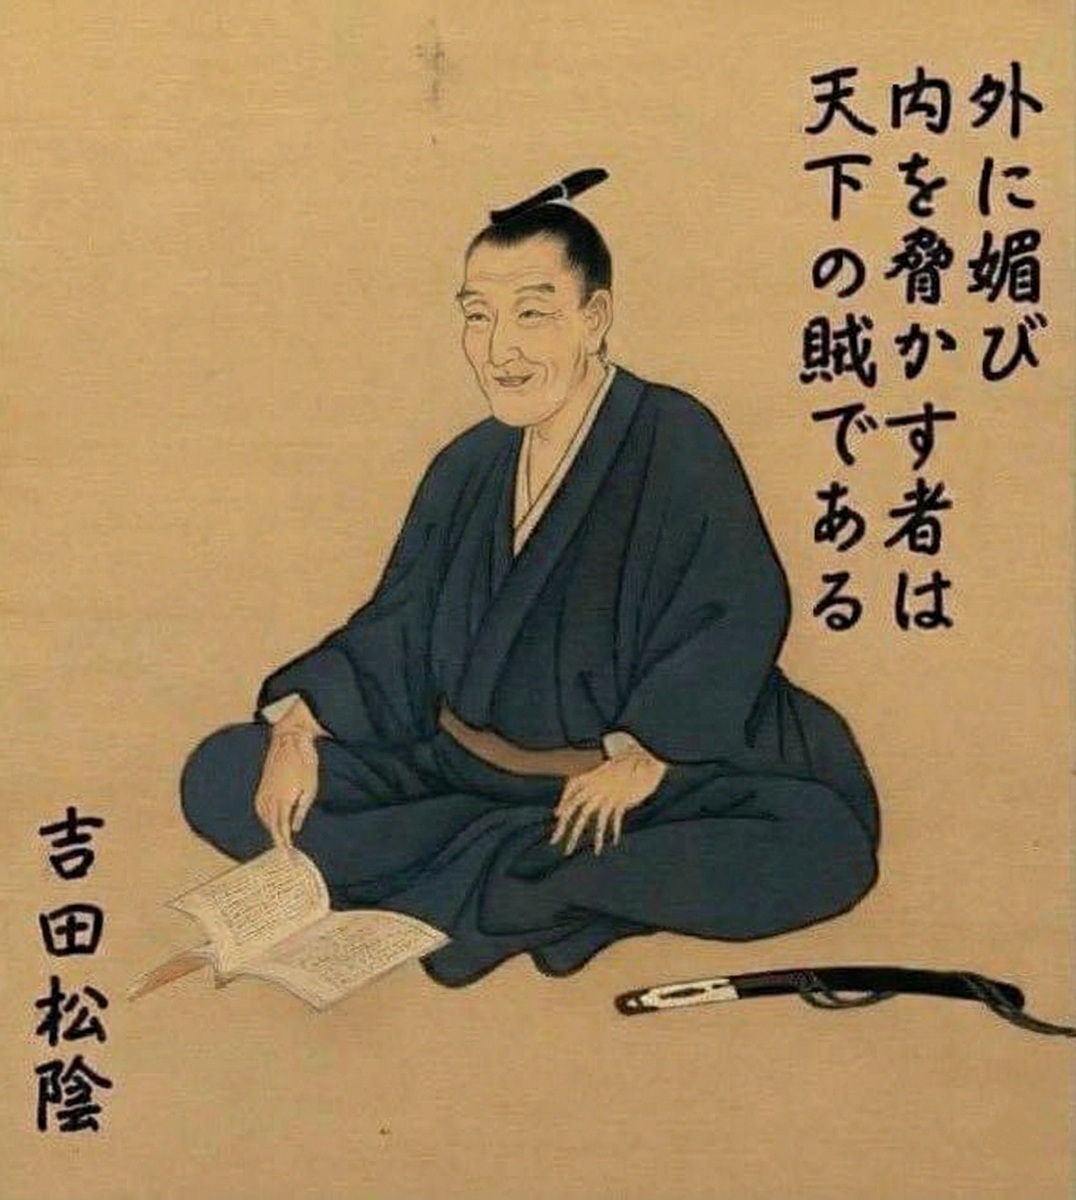 外に媚び
内を脅かす者は
天下の賊である
吉田松陰